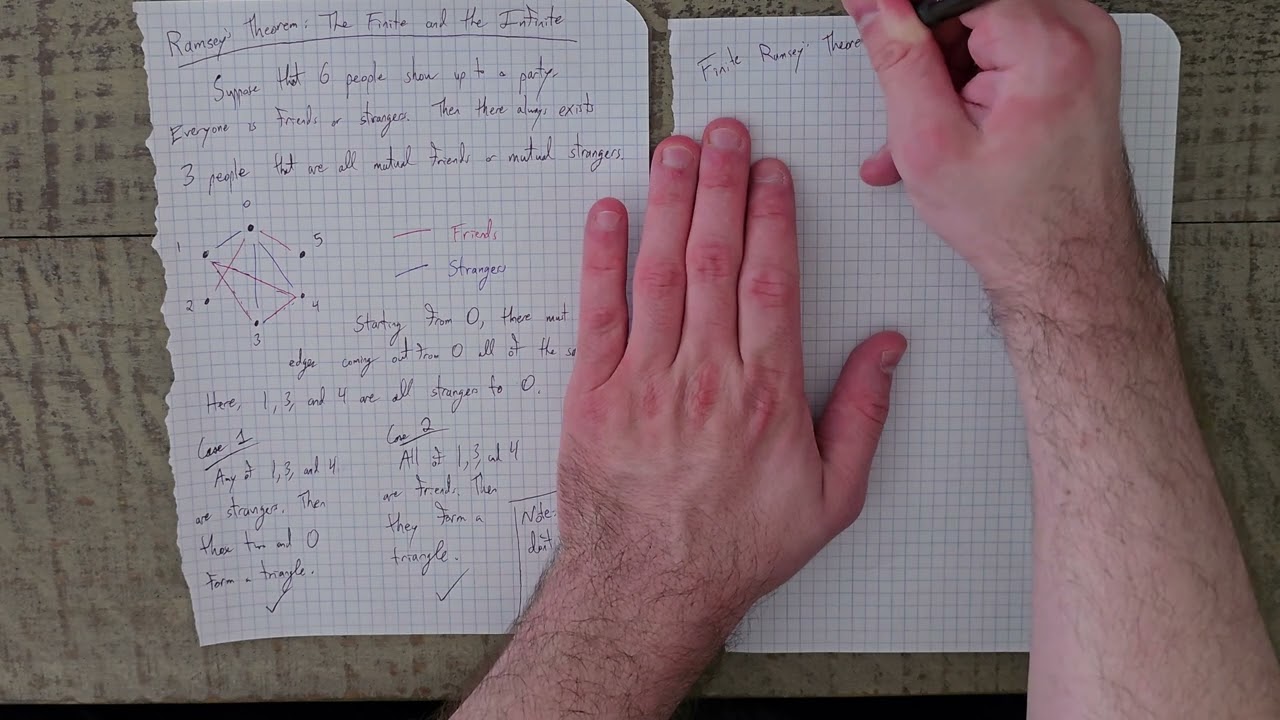 Ramsey's Theorem: The Finite and the Infinite
Suppose that 6 people show up to a party.
Everyone is friends or strangers. Then there always exists
3 people that are all mutual friends or mutual strangers.
0
1
5
2
4
3
Friends
Strangers
Starting from 0, there must
edges coming out from 0 all of the
Here, 1, 3, and 4 are all strangers to 0.
Case 1
Any of 1, 3, and 4
are strangers. Then
those two and 0
form a triangle.
Case 2
All of 1, 3, and 4
are friends. Then
they form a
triangle.
Note:
Finite Ramsey's Theore